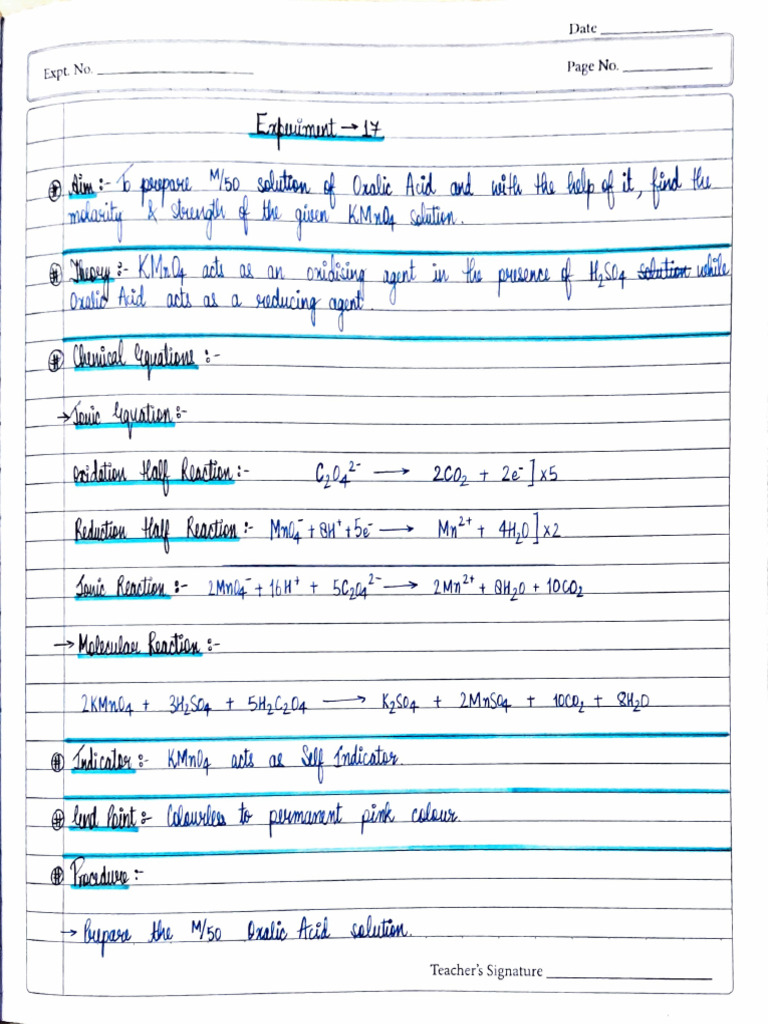 Date
Expt. No.
Page No.
Experiment → 17
# Aim :- To prepare M/50 solution of Oxalic Acid and with the help of it, find the
molarity & strength of the given KMnO₄ solution.
# Theory :- KMnO₄ acts as an oxidising agent in the presence of H₂SO₄ solution while
Oxalic Acid acts as a reducing agent.
# Chemical Equations :-
→ Ionic Equation :-
Oxidation Half Reaction :- C₂O₄²⁻ → 2CO₂ + 2e⁻] x5
Reduction Half Reaction :- MnO₄⁻ + 8H⁺ + 5e⁻ → Mn²⁺ + 4H₂O] x2
Ionic Reaction :- 2MnO₄⁻ + 16H⁺ + 5C₂O₄²⁻ → 2Mn²⁺ + 8H₂O + 10CO₂
→ Molecular Reaction :-
2KMnO₄ + 3H₂SO₄ + 5H₂C₂O₄ → K₂SO₄ + 2MnSO₄ + 10CO₂ + 8H₂O
# Indicator :- KMnO₄ acts as Self Indicator.
# End Point :- Colourless to permanent pink colour.
# Procedure :-
→ Prepare the M/50 Oxalic Acid solution.
Teacher's Signature